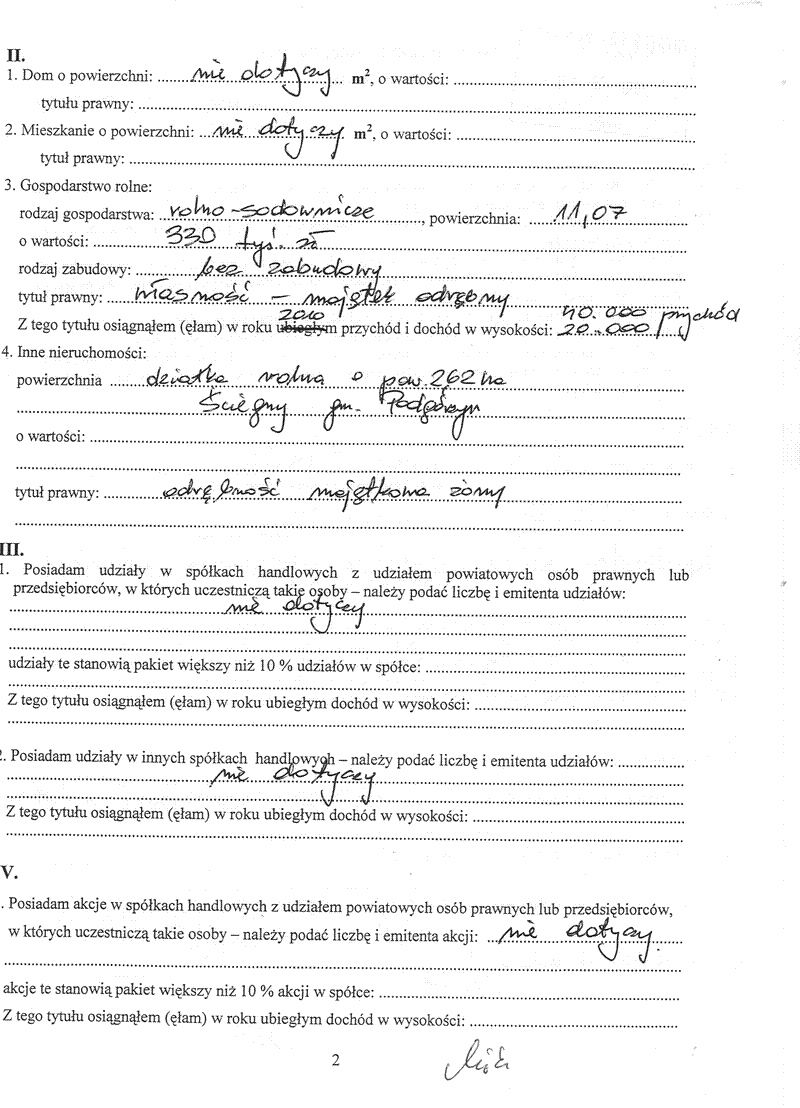 II.
1. Dom o powierzchni: ........nie dotyczy... m², o wartości: ........
tytułu prawny: ........
2. Mieszkanie o powierzchni: ...nie dotyczy. m², o wartości: ........
tytuł prawny: ........
3. Gospodarstwo rolne:
rodzaj gospodarstwa: ..rolno-sadownicze........, powierzchnia: .....11,07........
o wartości: ........330 tyś. zł........
rodzaj zabudowy: ........bez zabudowy........
tytuł prawny: .....własność – majątek odrębny........
2010 40.000 przychód
Z tego tytułu osiągnąłem (ęłam) w roku ubiegłym przychód i dochód w wysokości: 20.000
4. Inne nieruchomości:
powierzchnia ......działka rolna o pow. 262 ha
Ściegny gm. Podgórzyn
o wartości: ........
........
tytuł prawny: ........odrębność majątkowa żony........
........
III.
1. Posiadam udziały w spółkach handlowych z udziałem powiatowych osób prawnych lub
przedsiębiorców, w których uczestniczą takie osoby – należy podać liczbę i emitenta udziałów:
........nie dotyczy........
........
........
udziały te stanowią pakiet większy niż 10 % udziałów w spółce: ........
........
Z tego tytułu osiągnąłem (ęłam) w roku ubiegłym dochód w wysokości: ........
........
2. Posiadam udziały w innych spółkach handlowych – należy podać liczbę i emitenta udziałów: ........
........nie dotyczy........
........
Z tego tytułu osiągnąłem (ęłam) w roku ubiegłym dochód w wysokości: ........
........
V.
. Posiadam akcje w spółkach handlowych z udziałem powiatowych osób prawnych lub przedsiębiorców,
w których uczestniczą takie osoby – należy podać liczbę i emitenta akcji: ...nie dotyczy.......
........
akcje te stanowią pakiet większy niż 10 % akcji w spółce: ........
Z tego tytułu osiągnąłem (ęłam) w roku ubiegłym dochód w wysokości: ........
2